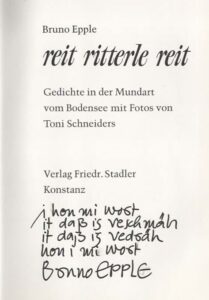 Bruno Epple
reit ritterle reit
Gedichte in der Mundart
vom Bodensee mit Fotos von
Toni Schneiders
Verlag Friedr. Stadler
Konstanz
i hon mi wost
it daß is veschmäh
it daß is vedsäh
hon i mi wost
Bruno EPPLE